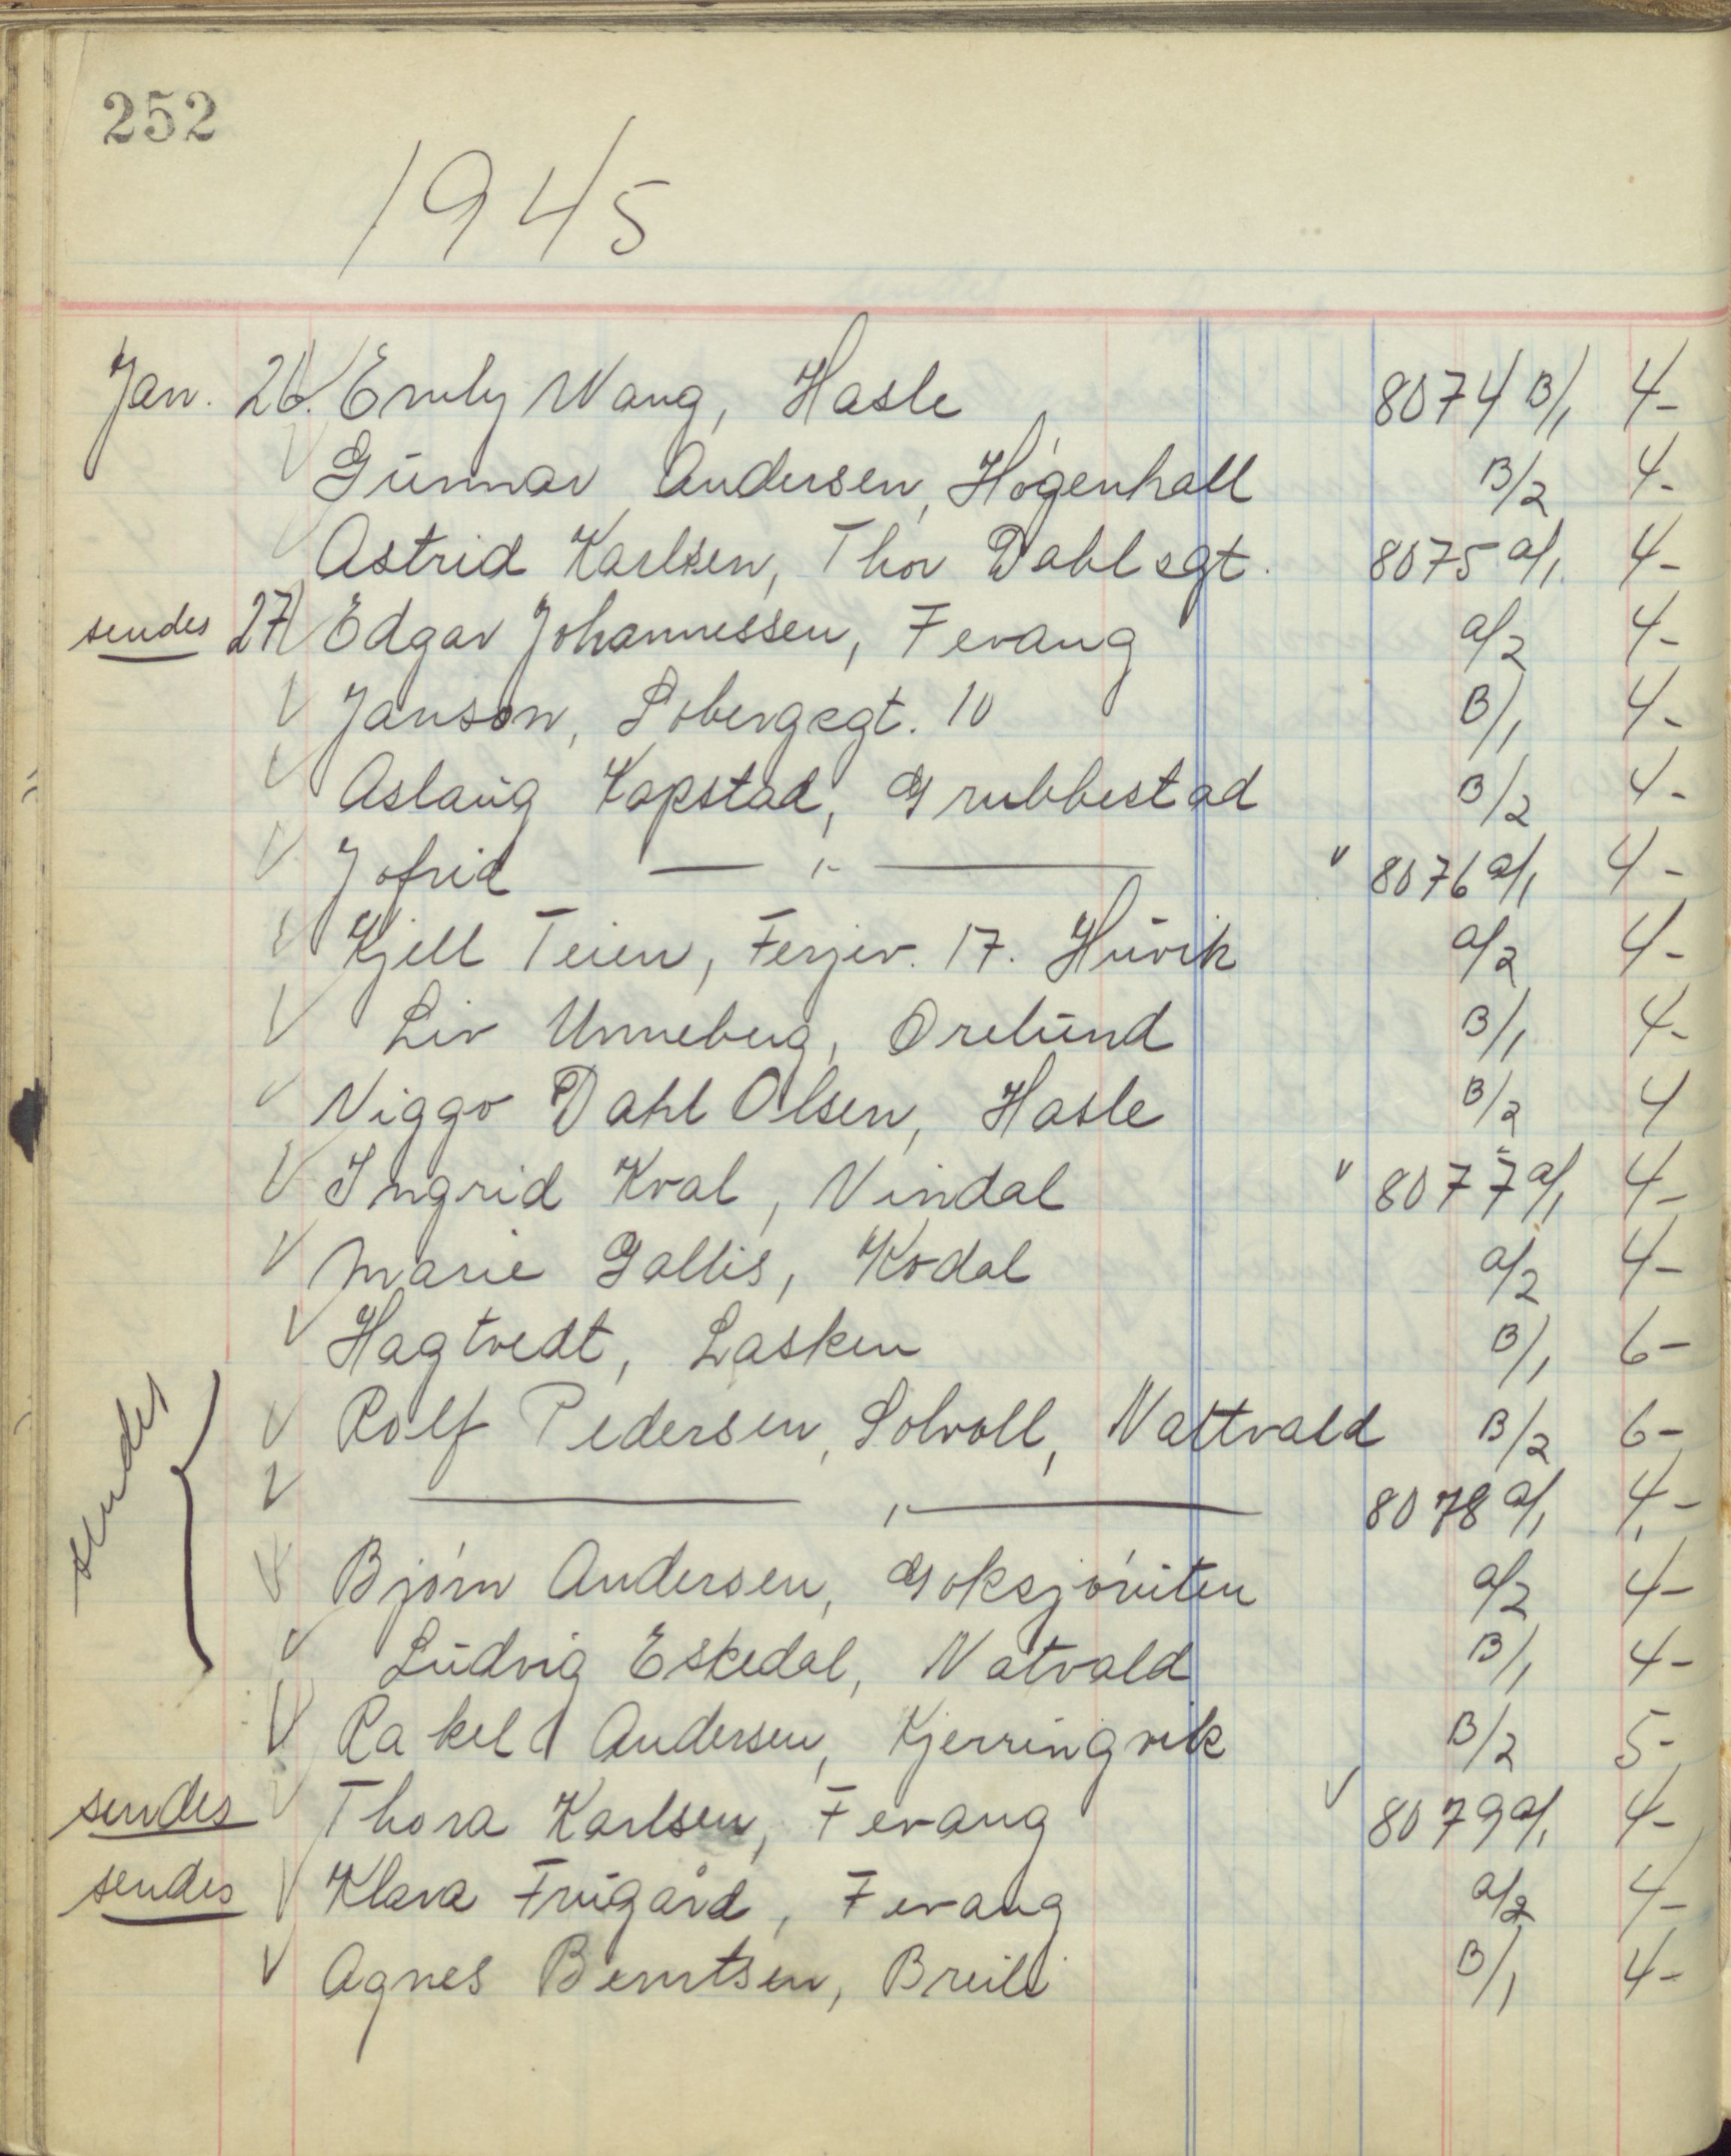 252
1945
Jan. 26. Emly Wang, Hasle 8074 B/1 4-
Gunnar Andersen, Høgenhall B/2 4-
Astrid Karlsen, Thor Dahlsgt. 8075 a/1 4-
sendes 27 Edgar Johannessen, Fevang a/2 4-
V Janson, Solbergsgt. 10 B/1 4-
V Aslaug Kapstad, Grubbestad B/2 4-
V Jofrid — " — v 8076 a/1 4-
V Kjell Teien, Ferjev. 17. Huvik a/2 4-
V Liv Unneberg, Orelund B/1 4-
V Viggo Dahl Olsen, Hasle B/2 4
V Ingrid Kval, Vindal v 8077 a/1 4-
V Marie Gallis, Kodal a/2 4-
V Hagtvedt, Lasken B/1 6-
sendes V Rolf Pedersen, Solvoll, Nattvald B/2 6-
V — " — 8078 a/1 4,-
V Bjørn Andersen, Goksjøruten a/2 4-
V Ludvig Eskedal, Natvald B/1 4-
V Rakel Andersen, Kjerringvik B/2 5-
sendes V Thora Karlsen, Fevang V 8079 a/1 4-
sendes V Klara Frugård, Fevang a/2 4-
V Agnes Berntsen, Breili B/1 4-